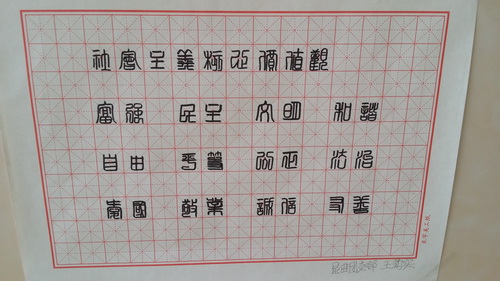 社會主義核心價值觀
富強 民主 文明 和諧
自由 平等 公正 法治
愛國 敬業 誠信 友善